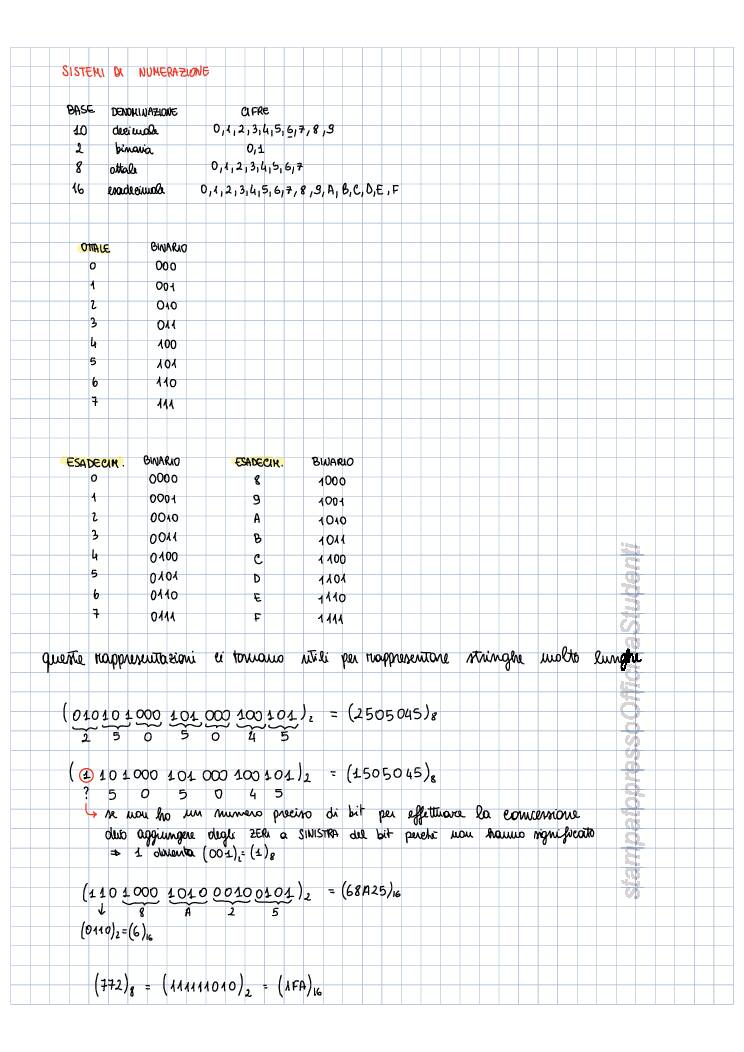 SISTEMI DI NUMERAZIONE
BASE DENOMINAZIONE CIFRE
10 decimale 0,1,2,3,4,5,6,7,8,9
2 binaria 0,1
8 ottale 0,1,2,3,4,5,6,7
16 esadecimale 0,1,2,3,4,5,6,7,8,9,A,B,C,D,E,F
OTTALE BINARIO
0 000
1 001
2 010
3 011
4 100
5 101
6 110
7 111
ESADECIM. BINARIO ESADECIM. BINARIO
0 0000 8 1000
1 0001 9 1001
2 0010 A 1010
3 0011 B 1011
4 0100 C 1100
5 0101 D 1101
6 0110 E 1110
7 0111 F 1111
queste rappresentazioni ci tornano utili per rappresentare stringhe molto lunghe
(010101000 101000 100101)₂ = (2505045)₈
2 5 0 5 0 4 5
(1 101000 101000 100101)₂ = (1505045)₈
? 5 0 5 0 4 5
↳ se non ho un numero preciso di bit per effettuare la conversione
devo aggiungere degli ZERI a SINISTRA del bit perché non hanno significato
⇒ 1 diventa (001)₂=(1)₈
(110 1000 1010 00100101)₂ = (68A25)₁₆
↓ 8 A 2 5
(0110)₂=(6)₁₆
(772)₈ = (111111010)₂ = (1FA)₁₆
stampatopressoOfficinaStudenti